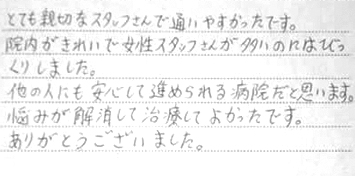 とても親切なスタッフさんで通いやすかったです。
院内がきれいで女性スタッフさんが多いのにはびっ
くりしました。
他の人にも安心して進められる病院だと思います。
悩みが解消して治療してよかったです。
ありがとうございました。